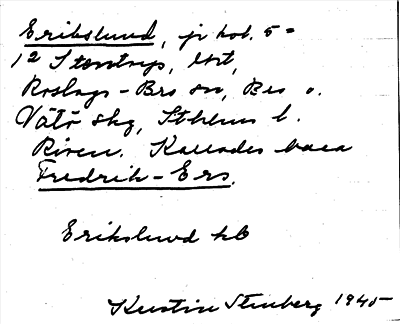 Erikslund, jr hob. 5 =
1² Stentorp, bort,
Roslags-Bro sn, Bro o.
Vätö skg, Sthlms l.
Riven. Kallades bara
Fredrik-Ers.
Erikslund hb
Kerstin Stenberg 1945